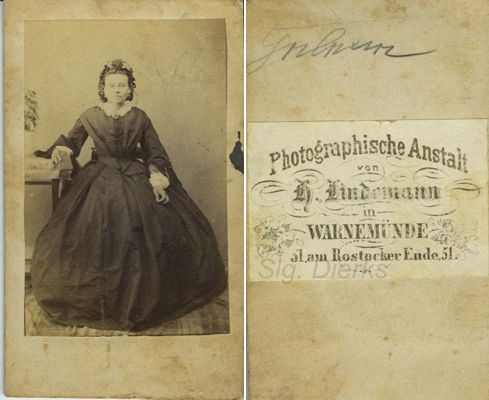 Photographische Anstalt
von
H. Lindemann
in
WARNEMÜNDE
51, am Rostocker Ende, 51.
Slg. Dierks